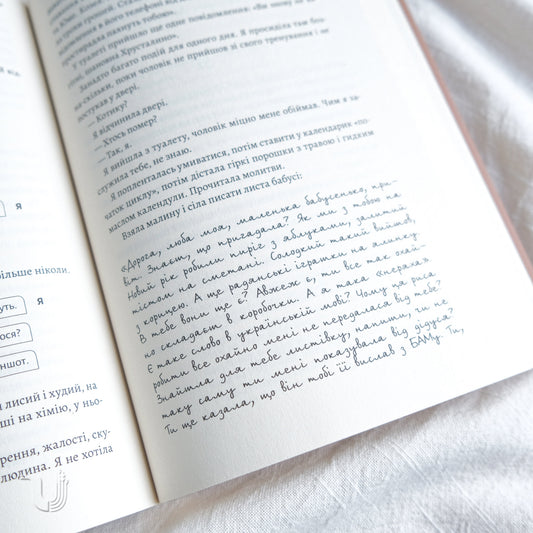 Я
більше ніколи.
уть.
Я
ося?
ншот.
лисий і худий, на
ші на хімію, у ньо-
рення, жалості, ску-
людина. Я не хотіла
в його телефоні
простирадла пахнуть тобою».
У туалеті прийшло ще одне повідомлення: «Ви знову не
шановна Хрусталино».
Занадто багато подій для одного дня. Я просиділа там
на скільки, поки чоловік не прийшов зі свого тренування і не
постукав у двері.
— Котику?
Я відчинила двері.
— Хтось помер?
— Так, я.
Я вийшла з туалету, чоловік міцно мене обіймав. Чим я за-
служила тебе, не знаю.
Я попленталась умиватися, потім ставити у календарик «по-
чаток циклу», потім дістала гіркі порошки з травою і гидким
маслом календули. Прочитала молитви.
Взяла малину і сіла писати листа бабусі:
«Дорога, люба моя, маленька бабусенько, при-
віт. Знаєш, що пригадала? Як ми з тобою на
Новий рік робили пиріг з яблуками, залитий
тістом на сметані. Солодкий такий вийшов,
з корицею. А ще радянські іграшки на ялинку.
В тебе вони ще є? Авжеж є, ти все так охай-
но складаєш в коробочки. А я така «неряха».
Є таке слово в українській мові? Чому ця риса
робити все охайно мені не передалася від тебе?
Знайшла для тебе листівку, напиши, чи не
таку саму ти мені показувала від дідуся?
Ти ще казала, що він тобі її вислав з БАМу. Ти,